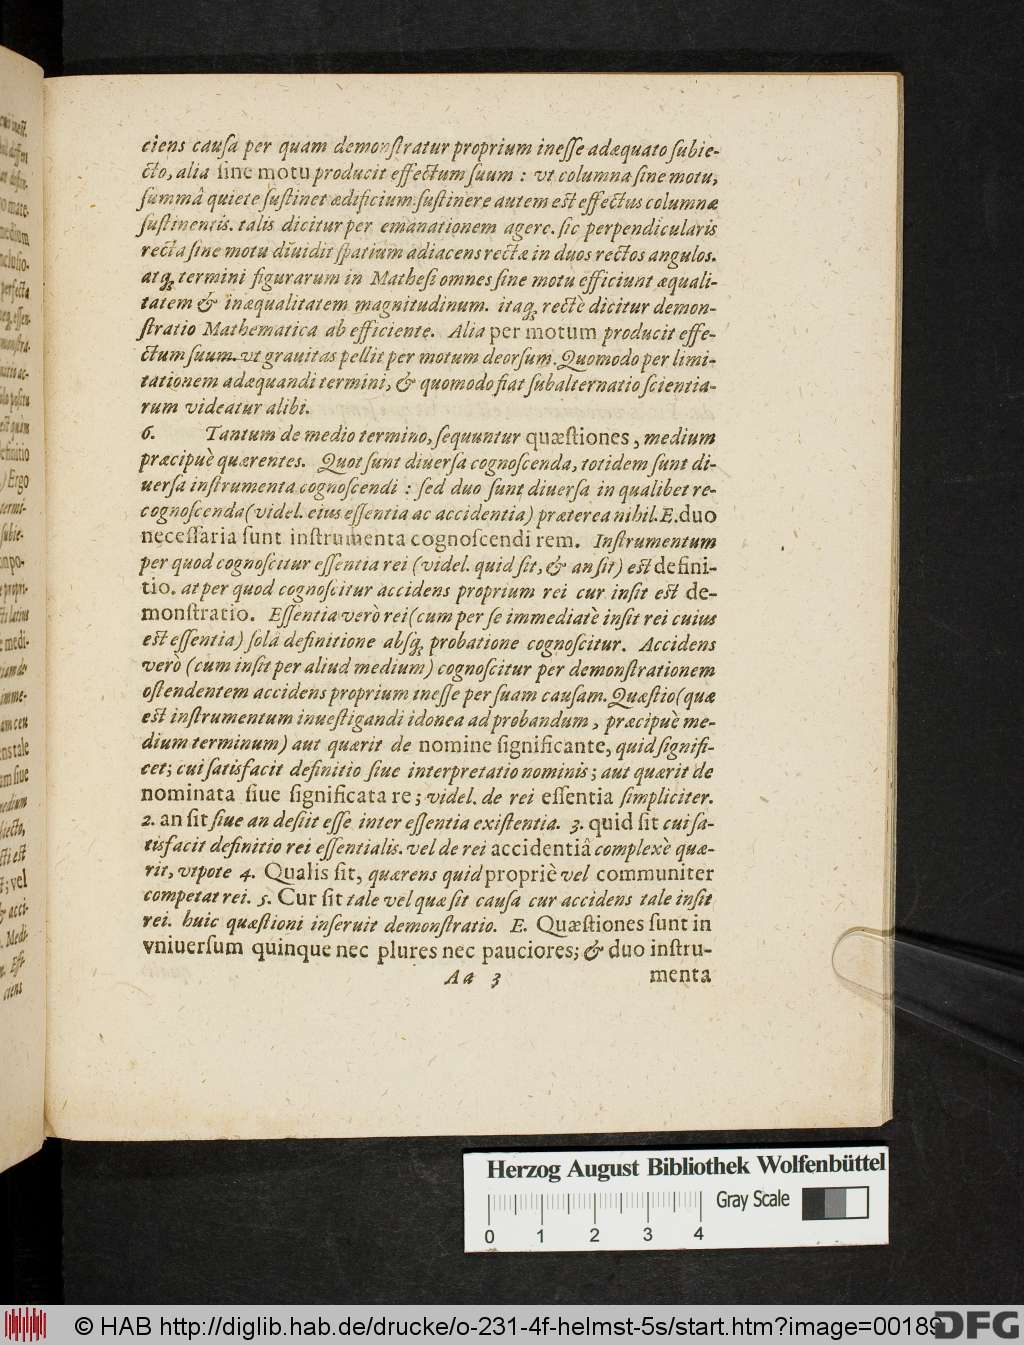 ciens cauſa per quam demonſtratur proprium ineſſe adæquato ſubie-
cto, alia ſine motu producit effectum ſuum : vt columna ſine motu,
ſummâ quiete ſuſtinet ædificium. ſuſtinere autem est effectus columnæ
ſuſtinentis. talis dicitur per emanationem agere. ſic perpendicularis
recta ſine motu diuidit ſpatium adiacens rectæ in duos rectos angulos.
atq; termini figurarum in Matheſi omnes ſine motu efficiunt æquali-
tatem & inæqualitatem magnitudinum. itaq; rectè dicitur demon-
ſtratio Mathematica ab efficiente. Alia per motum producit effe-
ctum ſuum. vt grauitas pellit per motum deorſum. Quomodo per limi-
tationem adæquandi termini, & quomodo fiat ſubalternatio ſcientia-
rum videatur alibi.
6. Tantum de medio termino, ſequuntur quæſtiones, medium
præcipuè quærentes. Quot ſunt diuerſa cognoſcenda, totidem ſunt di-
uerſa inſtrumenta cognoſcendi : ſed duo ſunt diuerſa in qualibet re-
cognoſcenda (videl. eius eſſentia ac accidentia) præterea nihil. E. duo
neceſſaria ſunt inſtrumenta cognoſcendi rem. Inſtrumentum
per quod cognoſcitur eſſentia rei (videl. quid ſit, & an ſit) est defini-
tio. at per quod cognoſcitur accidens proprium rei cur inſit est de-
monſtratio. Eſſentia verò rei (cum per ſe immediatè inſit rei cuius
est eſſentia) ſolâ definitione abſq; probatione cognoſcitur. Accidens
verò (cum inſit per aliud medium) cognoſcitur per demonſtrationem
oſtendentem accidens proprium ineſſe per ſuam cauſam. Quæſtio (quæ
est inſtrumentum inueſtigandi idonea ad probandum, præcipuè me-
dium terminum) aut quærit de nomine ſignificante, quid ſignifi-
cet; cui ſatisfacit definitio ſiue interpretatio nominis; aut quærit de
nominata ſiue ſignificata re; videl. de rei eſſentia ſimpliciter.
2. an ſit ſiue an deſiit eſſe inter eſſentia exiſtentia. 3. quid ſit cui ſa-
tisfacit definitio rei eſſentialis. vel de rei accidentiâ complexè quæ-
rit, vtpote 4. Qualis ſit, quærens quid propriè vel communiter
competat rei. 5. Cur ſit tale vel quæ ſit cauſa cur accidens tale inſit
rei. huic quæſtioni inſeruit demonſtratio. E. Quæſtiones ſunt in
vniuerſum quinque nec plures nec pauciores; & duo inſtru-
Aa 3 menta
Herzog August Bibliothek Wolfenbüttel
Gray Scale
0 1 2 3 4
© HAB http://diglib.hab.de/drucke/o-231-4f-helmst-5s/start.htm?image=00189
DFG